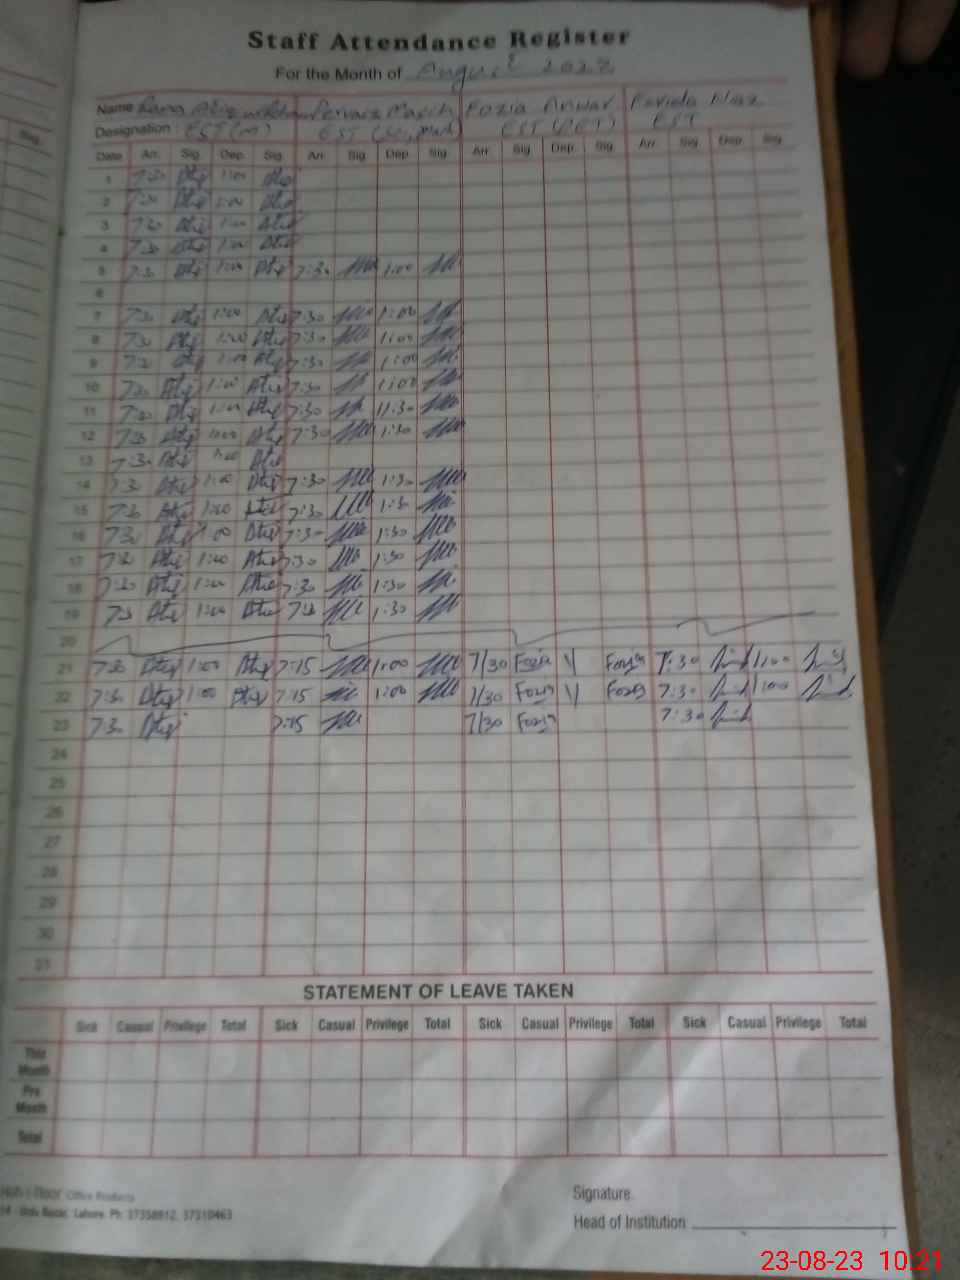 Staff Attendance Register
For the Month of August 2023
Name Rana Pervaiz Fozia Anwar Farida Niaz
Designation : EST (M) EST EST (PET) EST
Date Arr. Sig Dep. Sig Arr Sig Dep. Sig Arr. Sig Dep. Sig Arr. Sig Dep. Sig
1 7:30 Atiq 1:00 Atiq
2 7:30 Atiq 1:00 Atiq
3 7:30 Atiq 1:00 Atiq
4 7:30 Atiq 1:00 Atiq
5 7:30 Atiq 1:00 Atiq 7:30 1:00
6
7 7:30 Atiq 1:00 Atiq 7:30 1:00
8 7:30 Atiq 1:00 Atiq 7:30 1:00
9 7:30 Atiq 1:00 Atiq 7:30 1:00
10 7:30 Atiq 1:00 Atiq 7:30 1:00
11 7:30 Atiq 1:00 Atiq 7:30 11:30
12 7:30 Atiq 1:00 Atiq 7:30 1:30
13 7:30 Atiq 1:00 Atiq
14 7:30 Atiq 1:00 Atiq 7:30 1:30
15 7:30 Atiq 1:00 Atiq 7:30 1:30
16 7:30 Atiq 1:00 Atiq 7:30 1:30
17 7:30 Atiq 1:00 Atiq 7:30 1:30
18 7:30 Atiq 1:00 Atiq 7:30 1:30
19 7:30 Atiq 1:00 Atiq 7:30 1:30
20
21 7:30 Atiq 1:00 Atiq 7:15 1:00 7/30 Fozia Fozia 7:30 1:00
22 7:30 Atiq 1:00 Atiq 7:15 1:00 7/30 Fozia Fozia 7:30 1:00
23 7:30 Atiq 7:15 7/30 Fozia 7:30
24
25
26
27
28
29
30
31
STATEMENT OF LEAVE TAKEN
Sick Casual Privilege Total Sick Casual Privilege Total Sick Casual Privilege Total Sick Casual Privilege Total
This Month
Pre Month
Total
Office Products
Urdu Bazar, Lahore. Ph: 37358812, 37310463
Signature.
Head of Institution
23-08-23 10:21